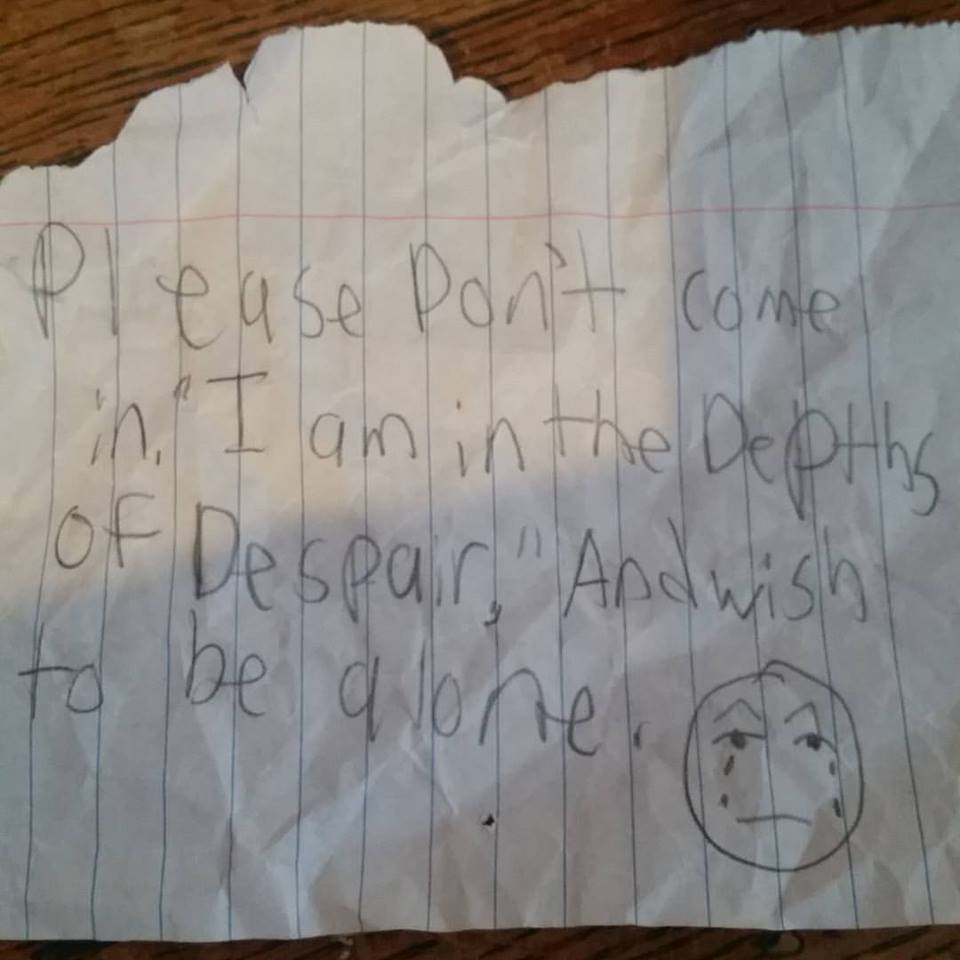 Please Don't come
in. "I am in the Depths
of Despair," And wish
to be alone.